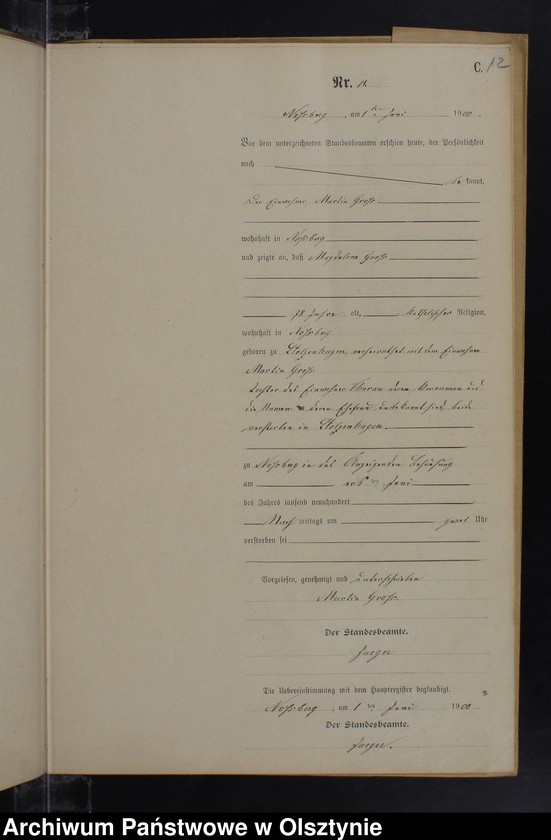 C. 12
Nr. 11.
Noßberg, am 1ten Juni 1900.
Vor dem unterzeichneten Standesbeamten erschien heute, der Persönlichkeit
nach
bekannt,
Der Einwohner Martin Groß
wohnhaft in Noßberg
und zeigte an, daß Magdalena Groß
78 Jahre alt, katholischer Religion,
wohnhaft in Noßberg
geboren zu Stolzenhagen, verheirathet mit dem Einwohner
Martin Groß
Tochter des Einwohner deren Vornamen und
die Namen deren Ehefrau unbekannt sind, beide
verstorben in Stolzenhagen.
zu Noßberg in des Anzeigenden Behausung
am ten Juni
des Jahres tausend neunhundert
Nachmittags um zwei Uhr
verstorben sei
Vorgelesen, genehmigt und unterschrieben
Martin Groß.
Der Standesbeamte.
Jaeger
Die Uebereinstimmung mit dem Hauptregister beglaubigt.
Noßberg, am 1ten Juni 1900.
Der Standesbeamte.
Jaeger.
Archiwum Państwowe w Olsztynie